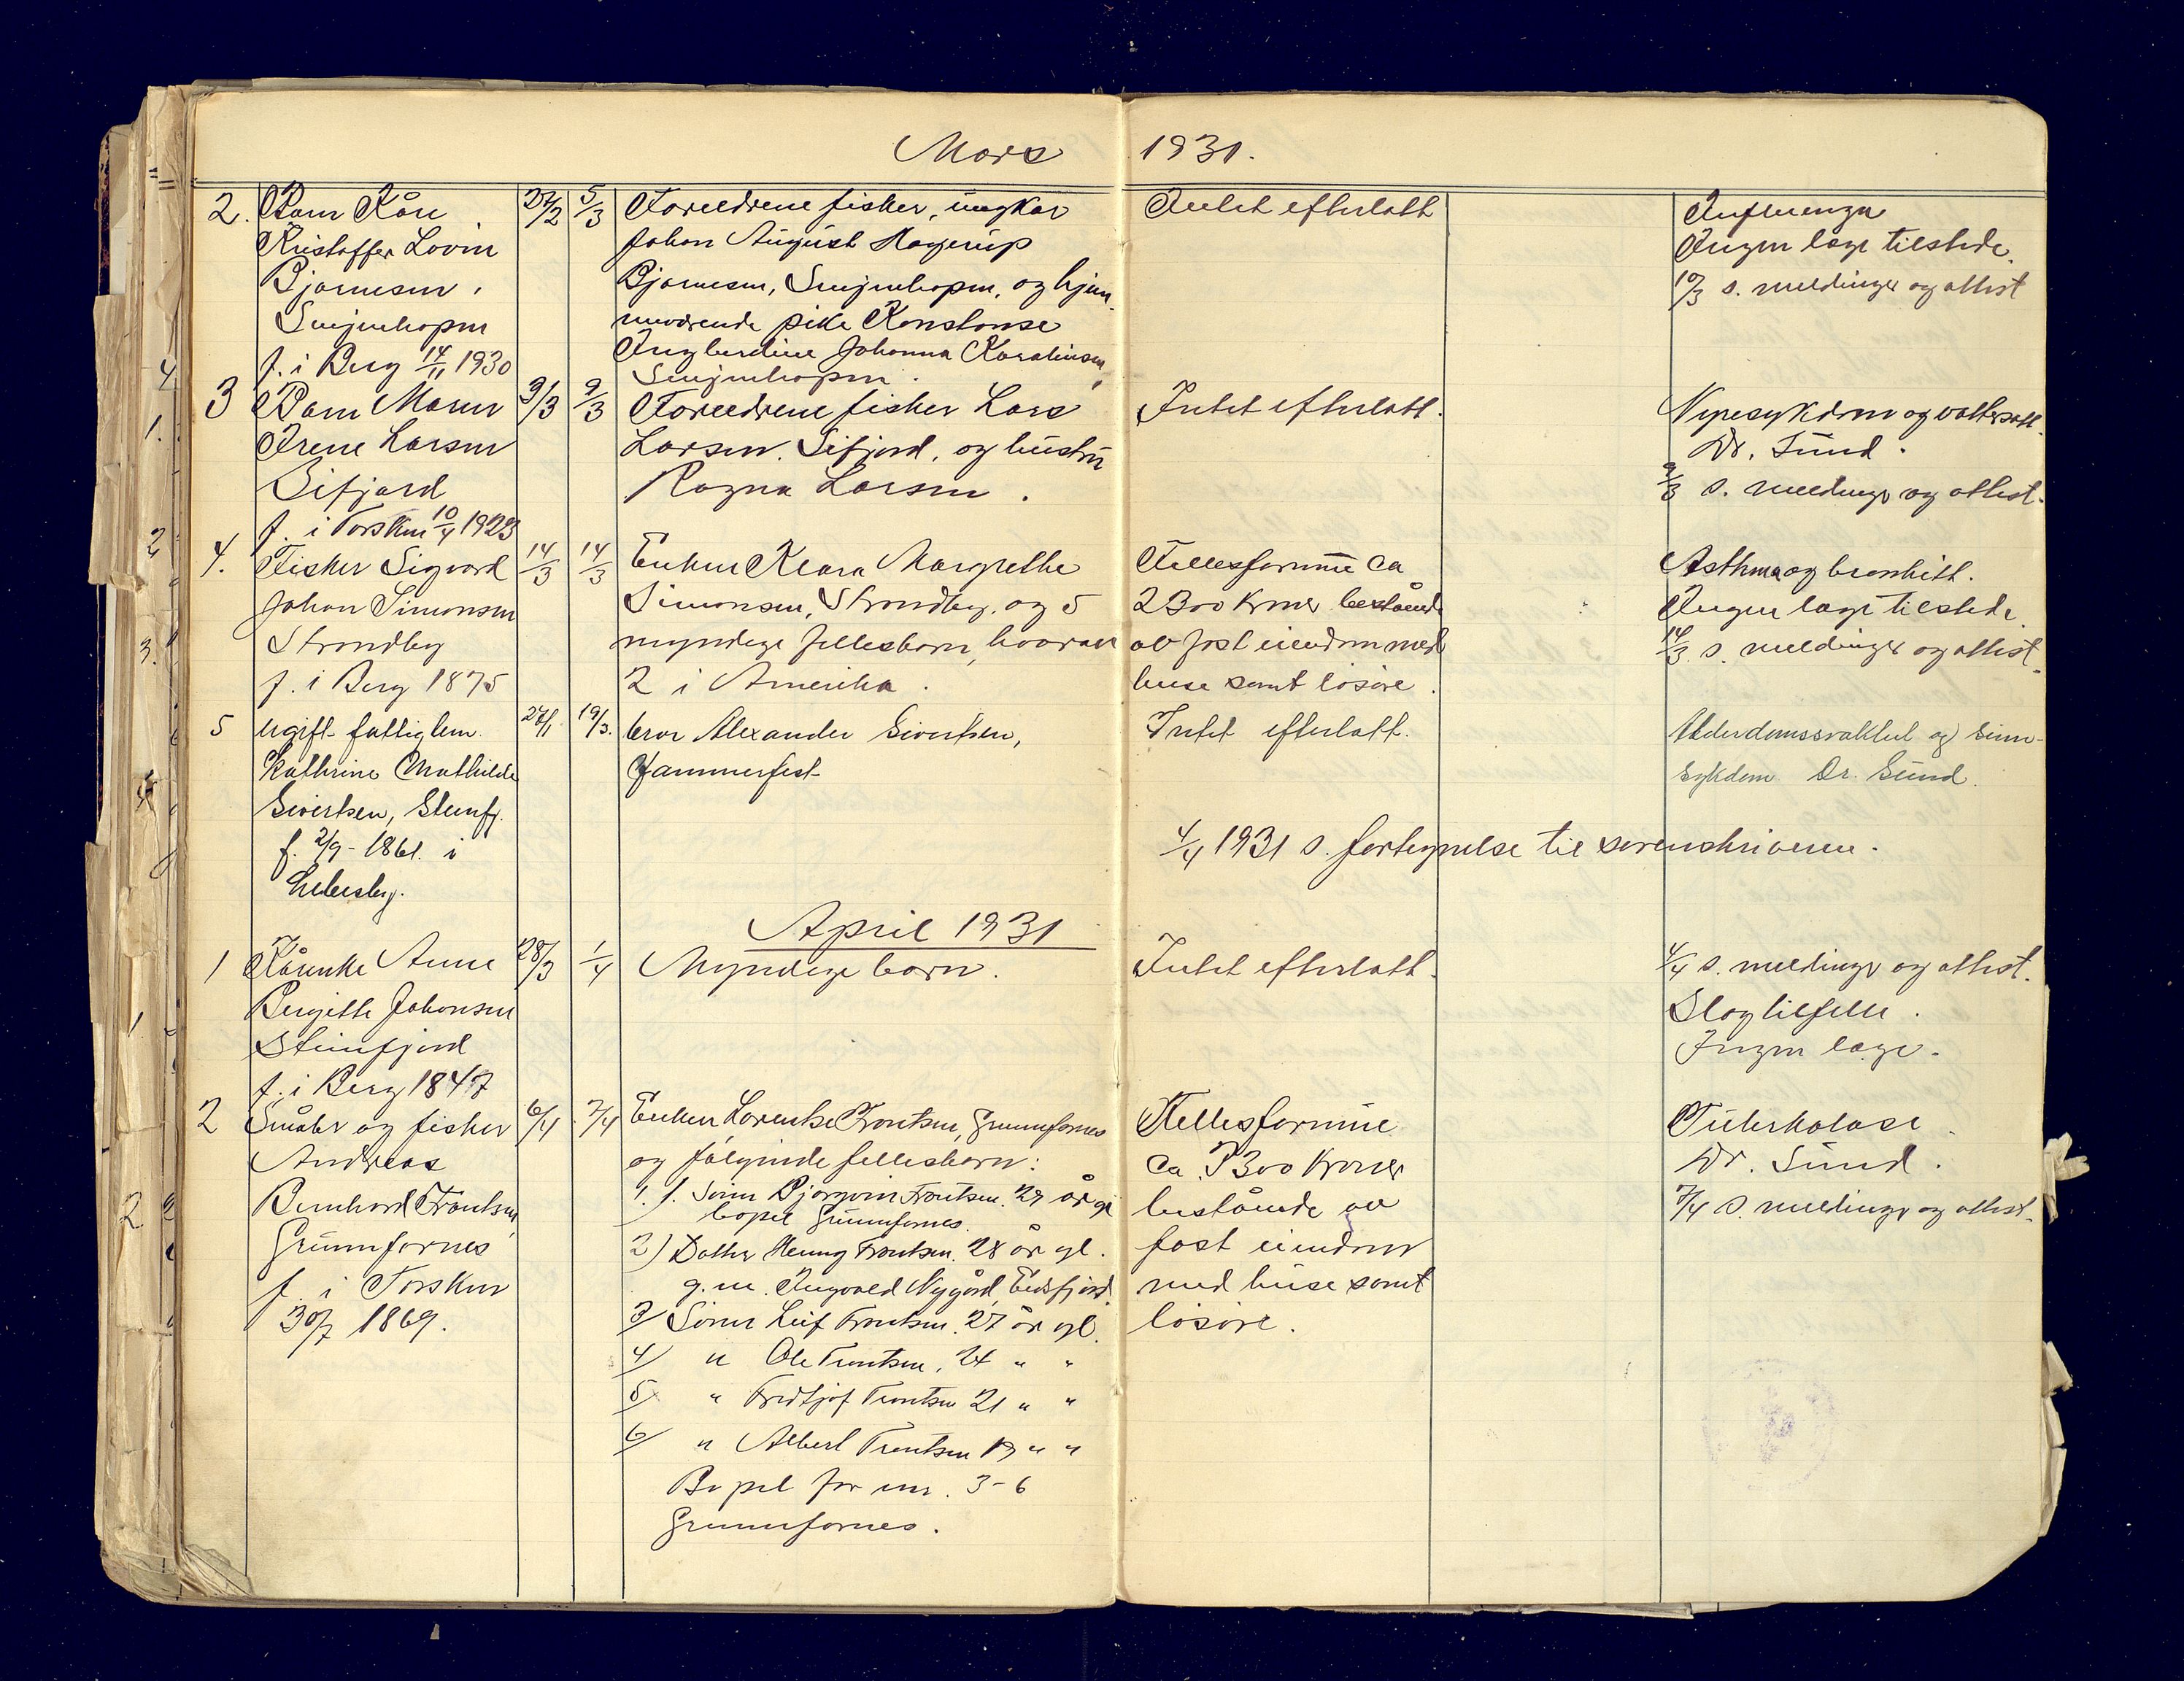 Mars 1931.
2. Barn Kåre
Kristoffer Lovin
Bjørnesen,
Senjenhopen
f. i Berg 14/11 1930
27/2
5/3
Foreldrene fisker, ungkar
Johan August Hagerup
Bjørnesen, Senjenhopen, og hjem
meværende pike Konstanse
Ingberdine Johanna Karolinsen,
Senjenhopen.
Intet efterlatt
Influenza
Ingen læge tilstede.
10/3 s. meldinger og attest
3 Barn Maren
Irene Larsen
Sifjord
f. i Torsken 10/4 1923
9/3
9/3
Foreldrene fisker Lars
Larsen, Sifjord, og hustru
Ragna Larsen.
Intet efterlatt.
Nyresykdom og vattersott.
Dr. Sund.
9/3 s. meldinger og attest.
4. Fisker Sigvard
Johan Simonsen
Strandby
f. i Berg 1875
14/3
14/3
Enken Klara Margrethe
Simonsen, Strandby, og 5
myndige fellesbarn, hvorav
2 i Amerika.
Fellesformue ca
2300 kroner bestående
av fast eiendom med
huse samt løsøre.
Asthma og bronkitt.
Ingen læge tilstede.
14/3 s. meldinger og attest.
5 ugift fattiglem
Kathrine Mathilde
Sivertsen, Steinfj.
f. 2/9 - 1861. i
Lebesby.
27/1
19/3.
bror Alexander Sivertsen,
Hammerfest
Intet efterlatt.
Alderdomssvakhet og sinn-
sykdom Dr. Sund.
4/4 1931 s. fortegnelse til sorenskriveren.
April 1931
1 Kårenke Anne
Bergitte Johansen
Steinfjord
f. i Berg 1847
28/3
1/4
Myndige barn.
Intet efterlatt.
4/4 s. meldinger og attest.
Slagtilfelle.
Ingen læge.
2 Småbr og fisker
Andreas
Bernhard Frantsen,
Grunnfarnes
f. i Torsken
30/7 1869.
6/4
7/4
Enken Lorentse Frantsen, Grunnfarnes
og følgende fellesbarn:
1. f. Sønn Bjørgvin Frantsen. 29 år gl
bopel Grunnfarnes.
2) Datter Henny Frantsen. 28 år gl.
g.m. Ingvald Nygård, Eidsfjord.
3/ Sønn Leif Frantsen. 27 år gl.
4/ " Ole Frantsen, 24 " "
5/ " Fridtjof Frantsen 21 " "
6/ " Albert Frantsen 19 " "
Bopel for nr. 3-6
Grunnfarnes.
Fellesformue
ca. 3300 kroner
bestående av
fast eiendom
med huse samt
løsøre.
Tuberkolose.
Dr. Sund.
7/4 s. meldinger og attest.